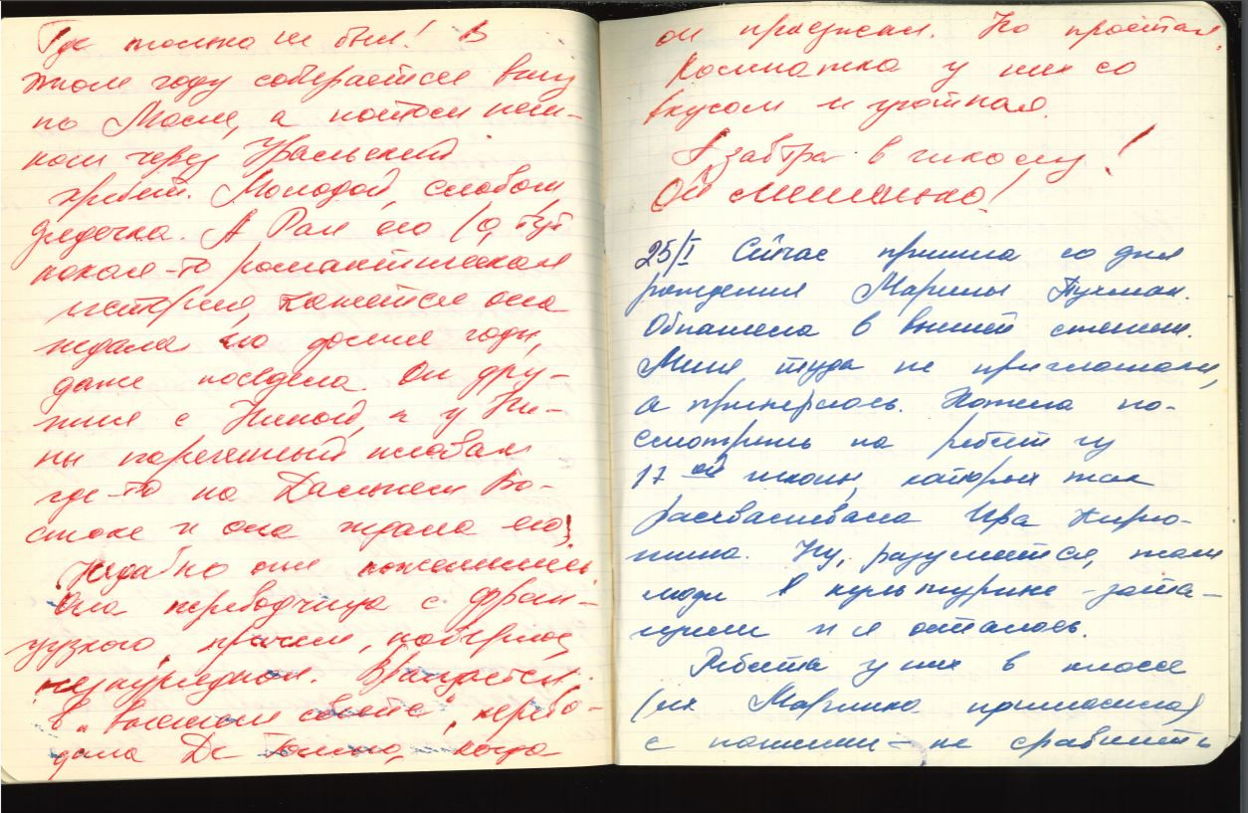 Где только не был! В
этом году собирается вниз
по Мосле, а потом пеш-
ком через Уральский
хребет. Молодой, словом
дядечка. А Рая его (о, тут
какая-то романтическая
история, кажется она
ждала его долгие годы,
даже поседела. Он дру-
жил с Ниной, а у Ни-
ны пареный плавал
где-то на Дальнем Во-
стоке и она ждала его).
Недавно они поженились.
Она переводчица с фран-
цузкого, причем, наверное
незаурядная. Вращается
в "высшем свете", перево-
дила Де Голлю, когда
он приезжал. Но простая.
Комнатка у них со
вкусом и уютная.
А завтра в школу!
Ой мамонько!
25/I Сейчас пришла со дня
рождения Марины Тухман.
Обнаглела в высшей степени.
Меня туда не приглашали,
а приперлась. Хотела по-
смотреть на ребят из
17ой школы, которых так
расхваливала Ира Кирю-
шина. Ну, разумеется, там
люди культурные - зата-
щили и я осталась.
Ребята у них в классе
(их Маринка пригласила)
с нашими - не сравнить